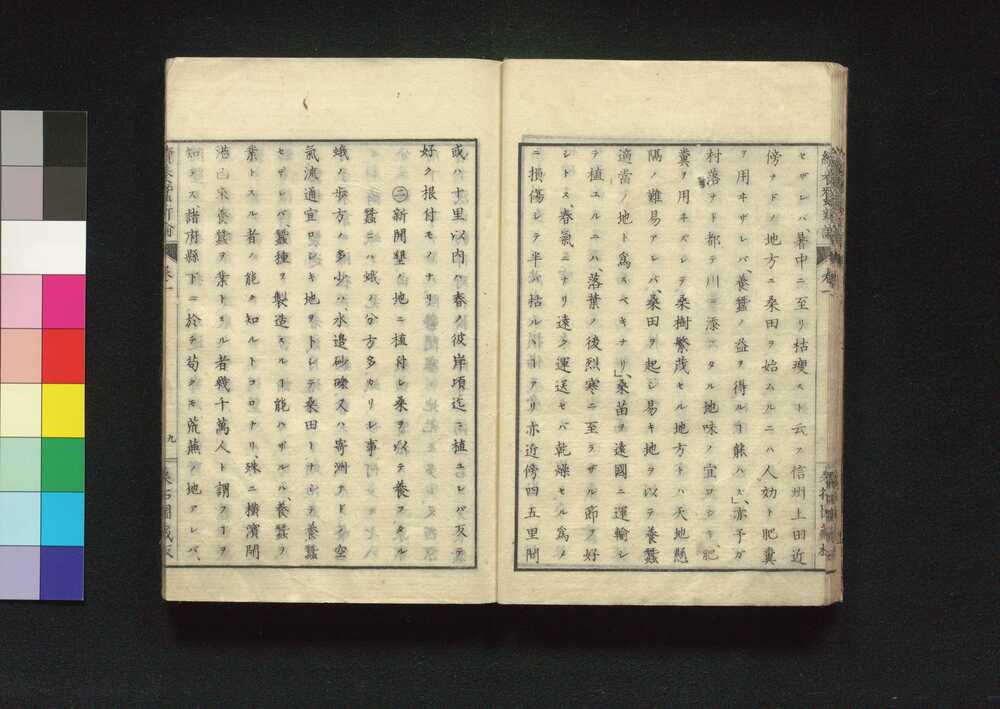 セザレバ、暑中ニ至リ枯痩スト云フ信州上田近
傍ナドノ地方ニ桑田ヲ始ムルニハ人効ト肥糞
ヲ用ヰザレバ、養蚕ノ益ヲ得ルヿ能ハズ」亦予ガ
村落ナド都テ川ニ添エタル地味ノ宜ロシキ肥
糞ヲ用ヰズシテ桑樹繁茂セル地方トハ天地懸
隔ノ難易アレバ、桑田ヲ起シ易キ地ヲ以テ養蚕
適當ノ地ト為スベキナリ」桑苗ヲ遠國ニ運輸シ
テ植エルニハ、落葉ノ後烈寒ニ至ラザル節ヲ好
シトス、春氣ニナリ遠ク運送セバ乾燥セル為メ
ニ損傷シテ半バ枯ルヽヿアリ亦近傍四五里間
或ハ十里以内ハ春ノ彼岸頃迄ニ植ユレバ反テ
好ク根付モノナリ
㊁新開墾ノ地ニ植付シ桑ヲ以テ養フタル
蚕ニハ蛾ノ分方多カリシ事
蛾ノ歩方ノ多少ハ水邊砂礫又ハ寄洲ナドノ空
氣流通宜ロシキ地ヲトシテ桑田トナシテ養蚕
セザレバ、蚕種ヲ製造スルヿ能ハザルハ、養蚕ヲ
業トスル者ノ能ク知ルトコロナリ、殊ニ横濱開
港已来養蚕ヲ業トスル者幾千萬人ト謂フヿヲ
知ラズ、諸府縣下ニ於テ苟クモ荒蕪ノ地アレバ、
巻一
九